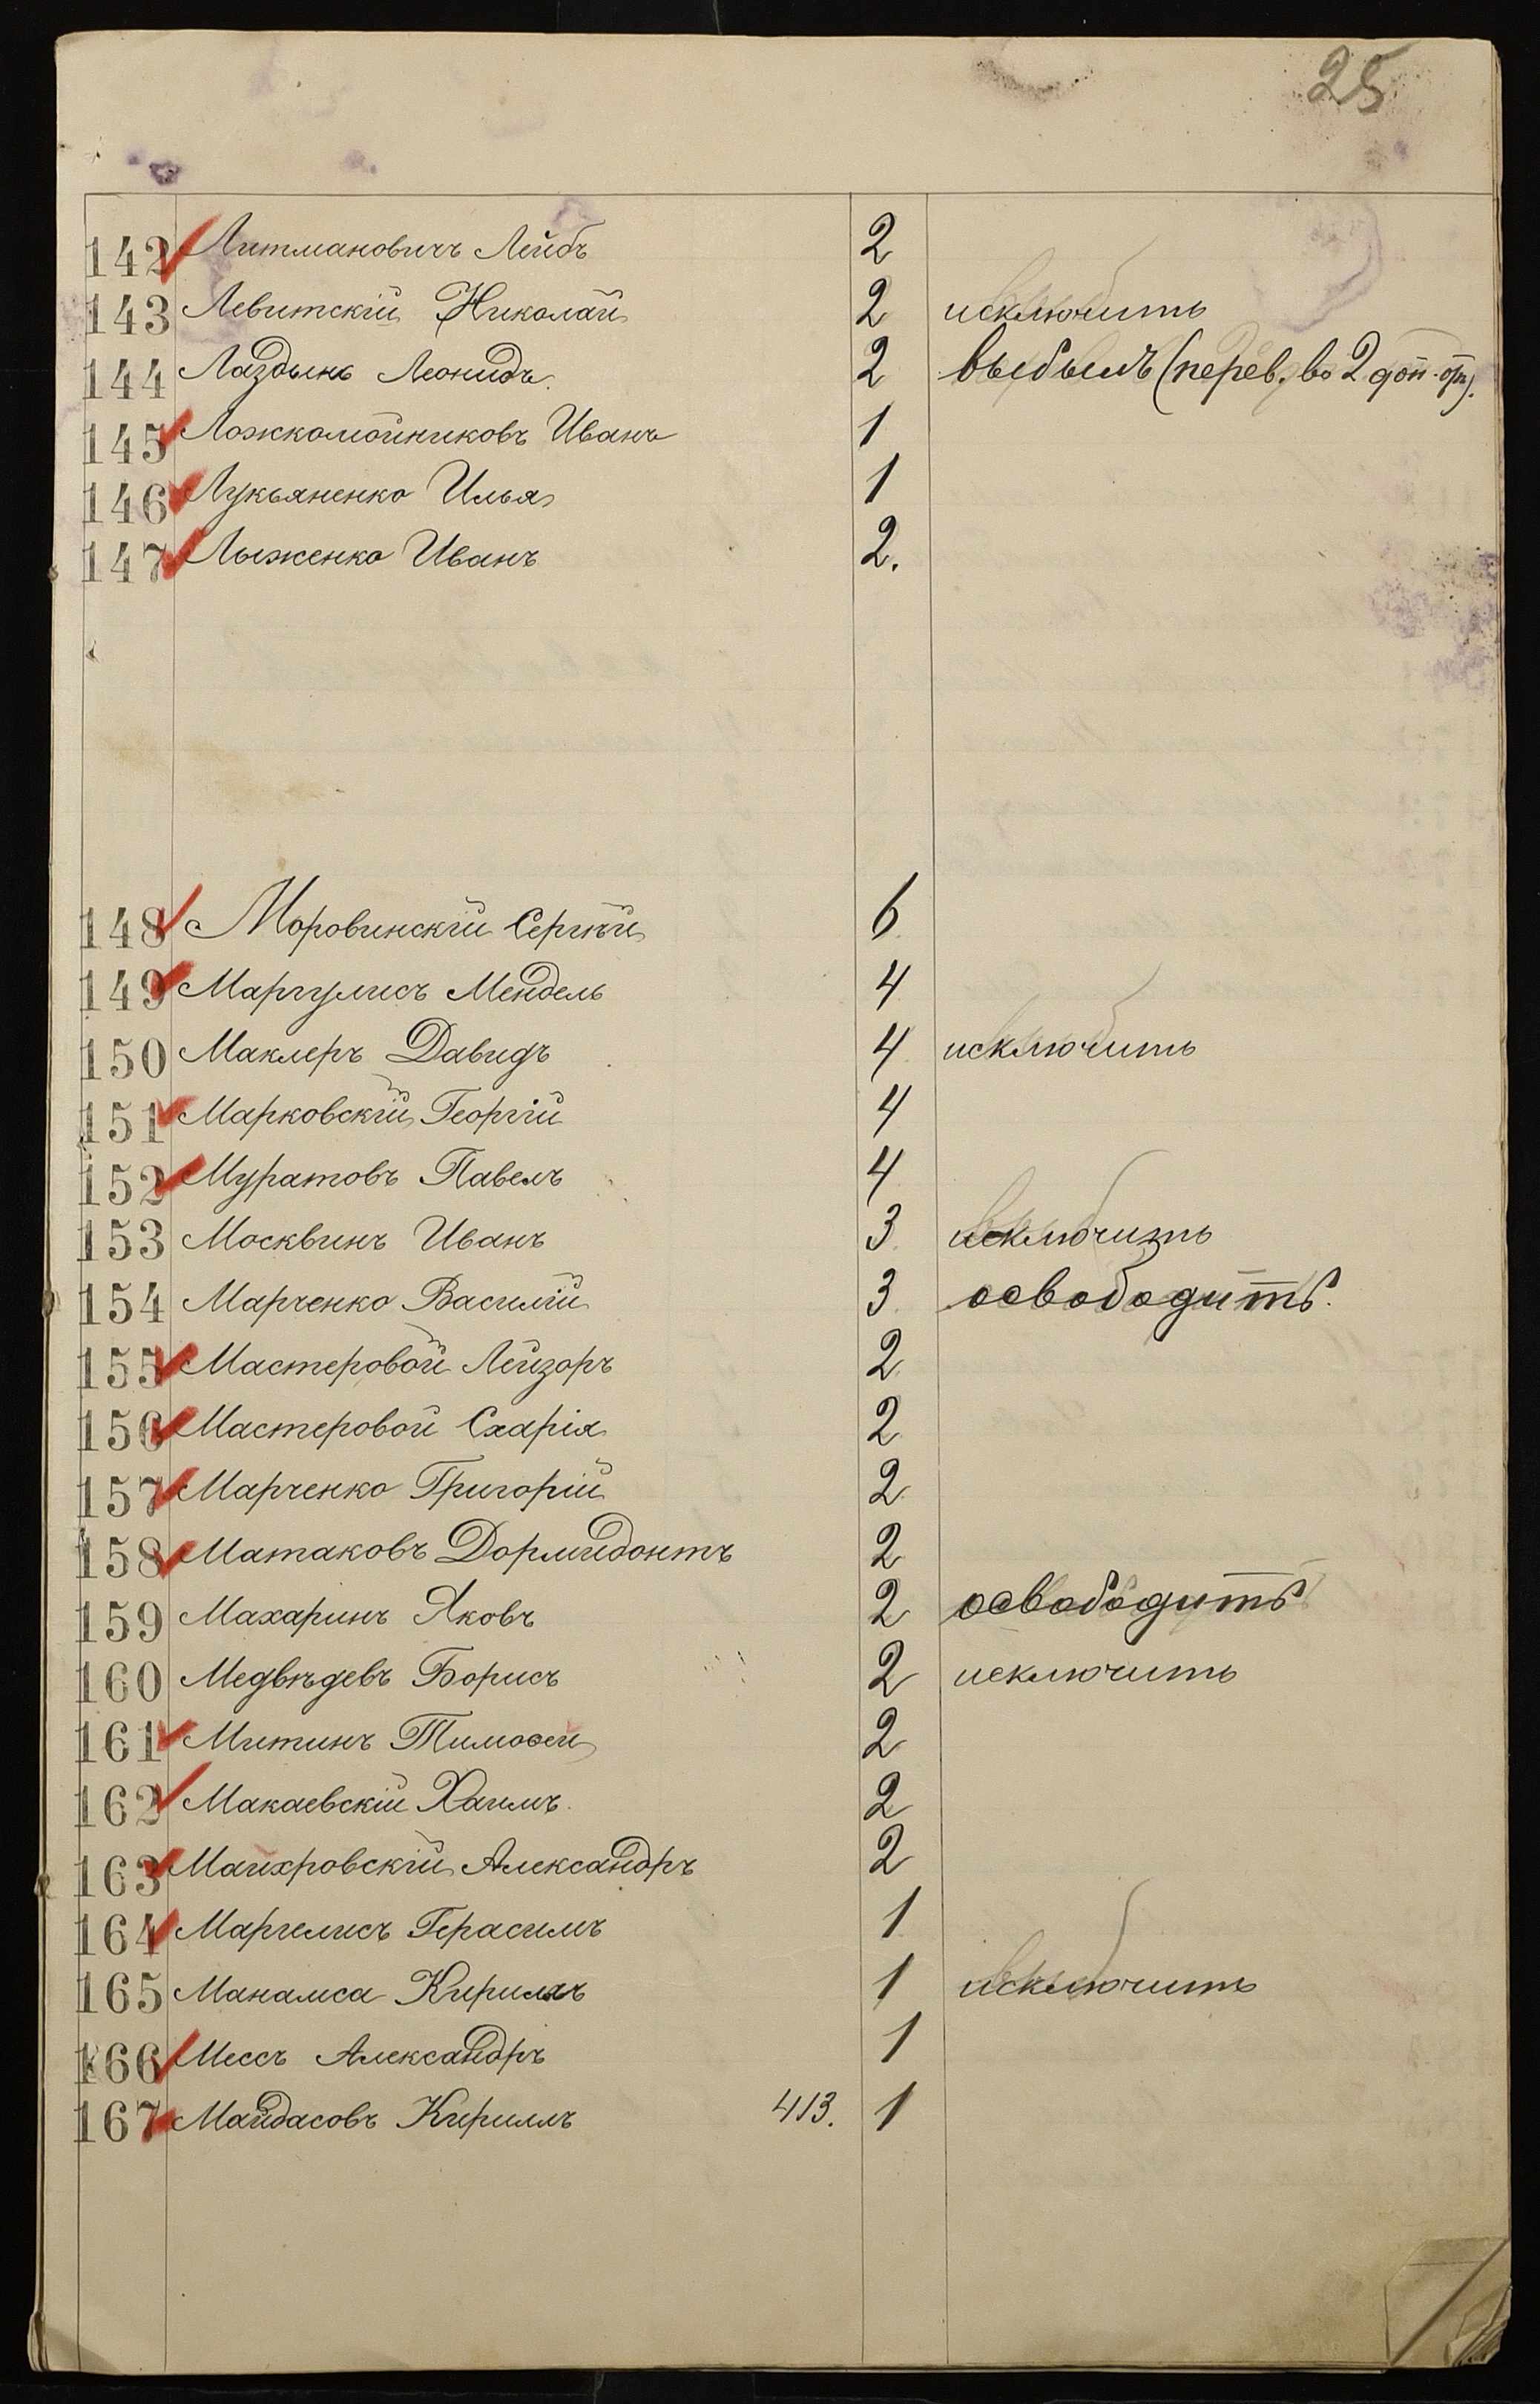 25
142 Литмановичъ Лейбъ 2
143 Левитскій Николай 2 исключить
144 Лаздынь Леонидъ. 2 выбылъ (перев. во 2 доп. отд.).
145 Ложкомойниковъ Иванъ 1
146 Лукьяненко Илья 1
147 Лыженко Иванъ 2.
148 Моровинскій Сергѣй 6
149 Маргулисъ Мендель 4
150 Маклеръ Давидъ 4 исключить
151 Марковскій Георгій 4
152 Муратовъ Павелъ 4
153 Москвинъ Иванъ 3 исключить
154 Марченко Василій 3 освободить.
155 Мастеровой Лейзоръ 2
156 Мастеровой Схарія 2
157 Марченко Григорій 2
158 Матаковъ Дормидонтъ 2
159 Махаринъ Яковъ 2 освободить
160 Медвѣдевъ Борисъ 2 исключить
161 Митинъ Тимоѳей 2
162 Макаевскій Хаимъ. 2
163 Майхровскій Александръ 2
164 Маргелисъ Герасимъ 1
165 Манамса Кириллъ 1 исключить
166 Мессъ Александръ 1
167 Майдасовъ Кириллъ 413. 1